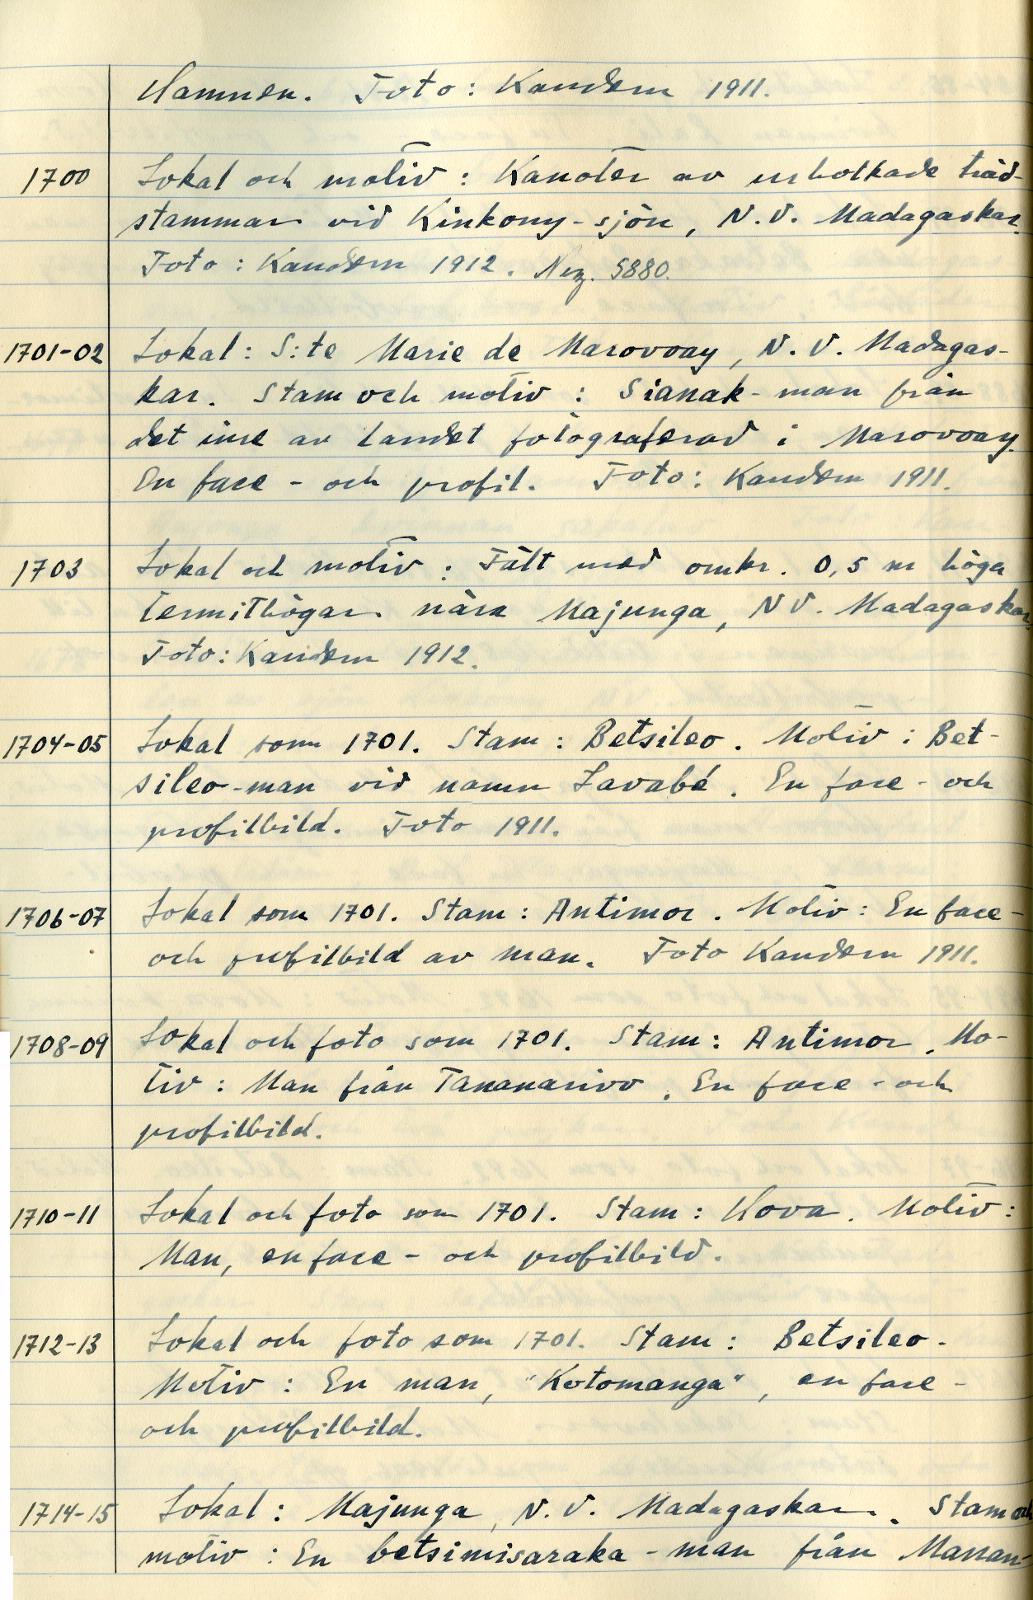 Hamnen. Foto: Kaudern 1911.
1700 Lokal och motiv: Kanoter av urholkade träd-
stammar vid Kinkony-sjön, N.V. Madagaskar.
Foto: Kaudern 1912. Neg. 5880.
1701-02 Lokal: S:te Marie de Marovoay, N.V. Madagas-
kar. Stam och motiv: Sianak-man från
det inre av landet fotograferad i Marovoay.
En face- och profil. Foto: Kaudern 1911.
1703 Lokal och motiv: Fält med omkr. 0,5 m höga
termithögar nära Majunga, NV. Madagaskar.
Foto: Kaudern 1912.
1704-05 Lokal som 1701. Stam: Betsileo. Motiv: Bet-
sileo-man vid namn Lavabé. En face- och
profilbild. Foto 1911.
1706-07 Lokal som 1701. Stam: Antimor. Motiv: En face-
och profilbild av man. Foto Kaudern 1911.
1708-09 Lokal och foto som 1701. Stam: Antimor. Mo-
tiv: Man från Tananarivo. En face- och
profilbild.
1710-11 Lokal och foto som 1701. Stam: Hova. Motiv:
Man, en face- och profilbild.
1712-13 Lokal och foto som 1701. Stam: Betsileo.
Motiv: En man, "Kotomanga", en face-
och profilbild.
1714-15 Lokal: Majunga, N.V. Madagaskar. Stam och
motiv: En betsimisaraka-man från Manan-